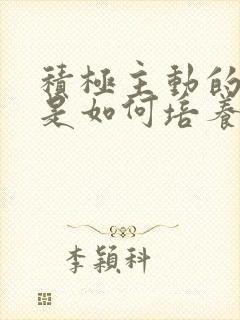 積極主動的
是如何培養
李穎科